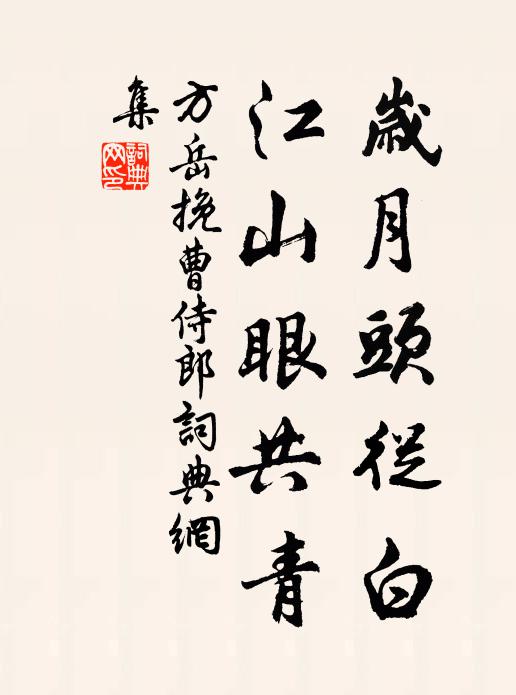 歲月頭從白
江山眼共青
方岳挽曹侍郎詞典網
集
詞典網印